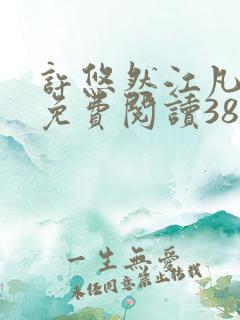 許悠然江凡
免費閱讀38
一生無愛
未經同意禁止轉載